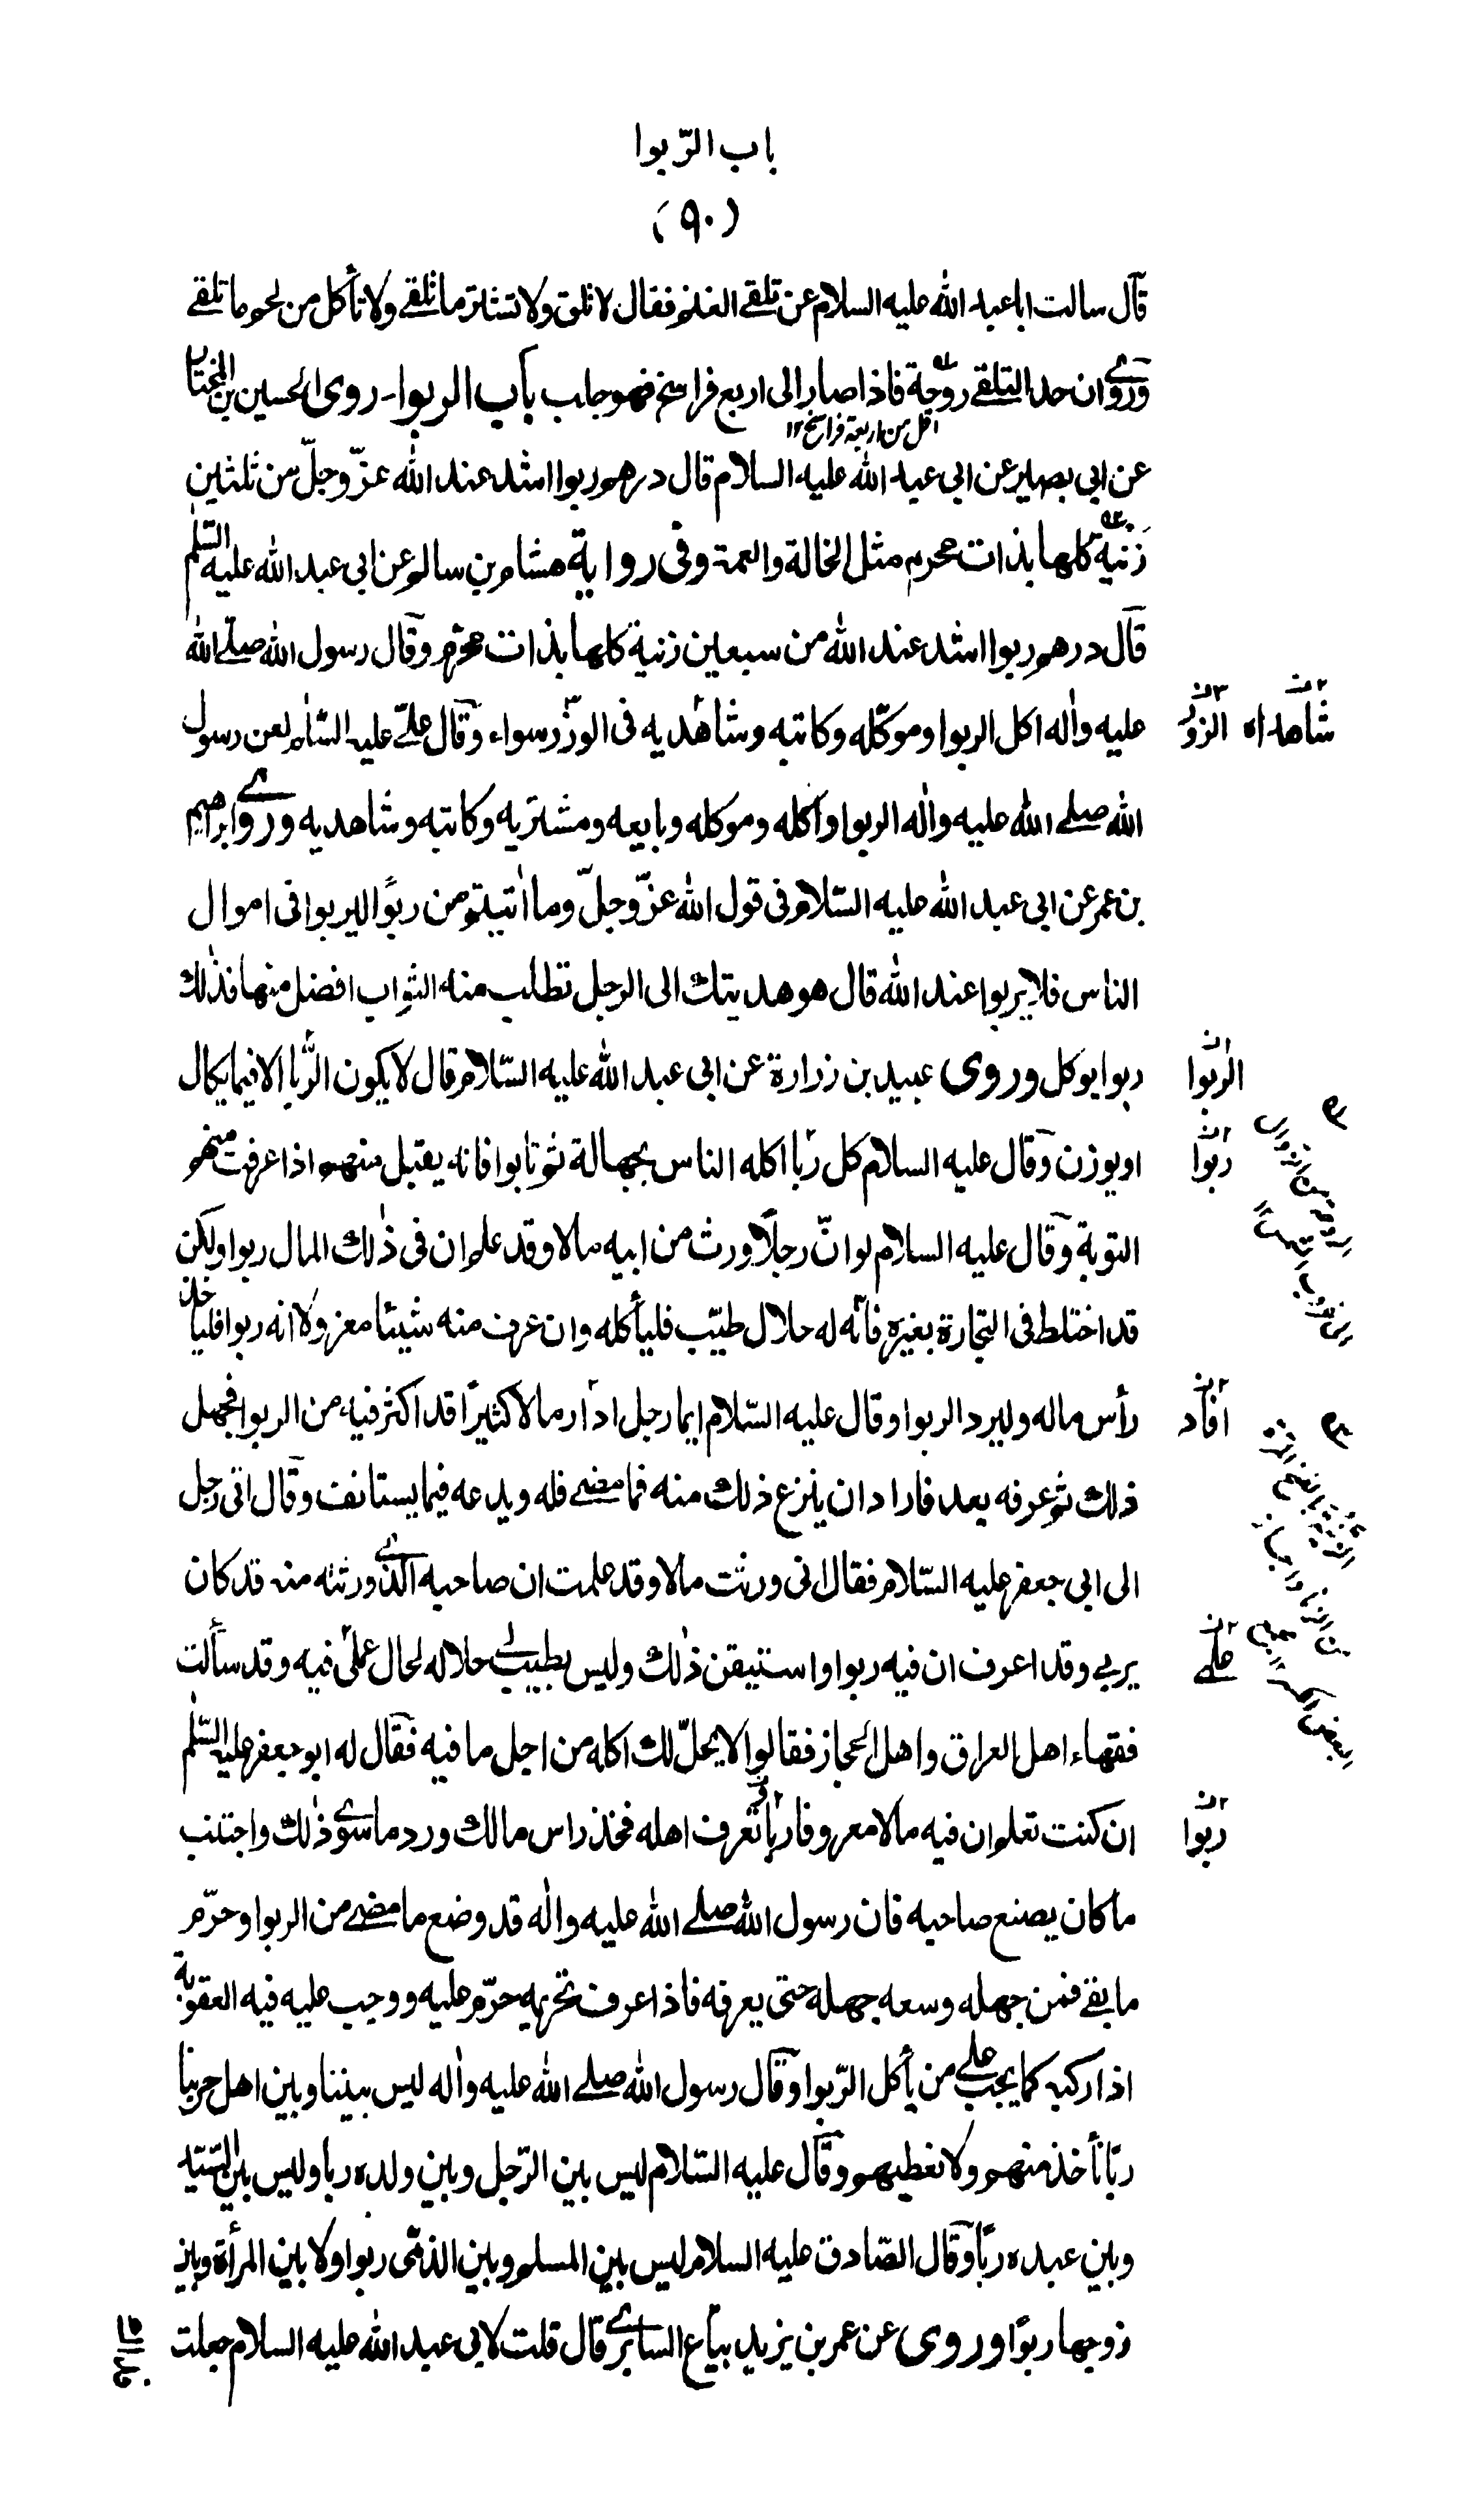 باب الرّبوا
(٩٠)
قال سالت اباعبد الله عليه السلام عن تلقے الغنم فقال لا تلق ولا تشتر ما تلقے ولا تأكل من لحم ما تلقے
وروے ان حد التلقے روحة فاذا صار الى اربع فراسخ فهو جلب باب الربوا۔ روى الحسين بن المختار
اقل من اربعة فراسخ ١٢
عن ابى بصير عن ابى عبد الله عليه السلام قال درهم ربوا اشد عند الله عزّ وجلّ من ثلثين
زنية كلها بذات محرم مثل الخالة والعمة وفى رواية هشام بن سالم عن ابى عبد الله عليه السّلم
قال درهم ربوا اشد عند الله من سبعين زنية كلها بذات محرم وقال رسول الله صلے الله
عليه واٰله اكل الربوا وموكّله وكاتبه وشاهديه فى الوزر سواء وقال علےّ عليه السّلام لعن رسول
شاهداه الزور
الله صلے الله عليه واٰله الربوا واٰكله وموكله وبايعه ومشتريه وكاتبه وشاهديه وروے ابراهيم
بن عمر عن ابى عبد الله عليه السّلام فى قول الله عزّ وجلّ وما اٰتيتم من ربوًا ليربوا فى اموال
الناس فلا يربوا عند الله قال هو هديتك الى الرجل تطلب منه الثواب افضل منها فذٰلك
ربوا يوكل وروى عبيد بن زرارة عن ابى عبد الله عليه السّلام قال لا يكون الرّبا الا فيما يكال
الربوا
او يوزن وقال عليه السلام كل ربا اكله الناس بجهالة ثم تابوا فانه يقبل منهم اذا عرفت منهم
ربوا
التوبة وقال عليه السلام لو انّ رجلًا ورث من ابيه مالا وقد علم ان فى ذٰلك المال ربوا ولكن
قد اختلط فى التجارة بغيره فانّه له حلال طيّب فليأكله وان عرف منه شيئا معزولا انه ربوا فلياخذ
رأس ماله وليرد الربوا وقال عليه السّلام ايما رجل ادار مالا كثيرًا قد اكثر فيه من الربوا فجهل
افاد
ذلك ثم عرفه بعد فاراد ان ينزع ذلك منه فما مضے فله ويدعه فيما يستانف وقال اتى رجل
الى ابى جعفر عليه السّلام فقال انى ورثت مالا وقد علمت ان صاحبه الذے ورثته منه قد كان
يربى وقد اعرف ان فيه ربوا واستيقن ذٰلك وليس بطيب لے حلاله لحال علمى فيه وقد سألت
فقهاء اهل العراق واهل الحجاز فقالوا لا يحلّ لك اكله من اجل ما فيه فقال له ابو جعفر عليه السّلم
ان كنت تعلم ان فيه مالا معروفا ربا وتعرف اهله فخذ راس مالك ورد ما سوے ذٰلك واجتنب
ربوا
ما كان يصنع صاحبه فان رسول الله صلے الله عليه واٰله قد وضع ما مضے من الربوا وحرّم
ما بقے فمن جهله وسعه جهله حتى يعرفه فاذا عرف تحريمه حرّم عليه ووجب عليه فيه العقوبة
اذا ركبه كما يجب علے من يأكل الرّبوا وقال رسول الله صلے الله عليه واٰله ليس بيننا وبين اهل حربنا
ربًا نأخذ منهم ولا نعطيهم وقال عليه السّلام ليس بين الرّجل وبين ولده ربا وليس بين السيّد
وبين عبده ربًا وقال الصّادق عليه السلام ليس بين المسلم وبين الذمّى ربوا ولا بين المرأة وبين
زوجها ربوًا وروى عن عمر بن يزيد بيّاع السابرے قال قلت لابى عبد الله عليه السلام جعلت